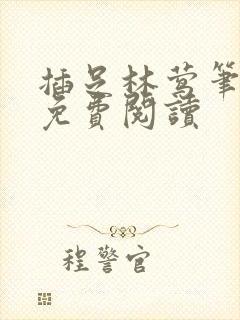 插足林莺筆
免費閱讀
程警官